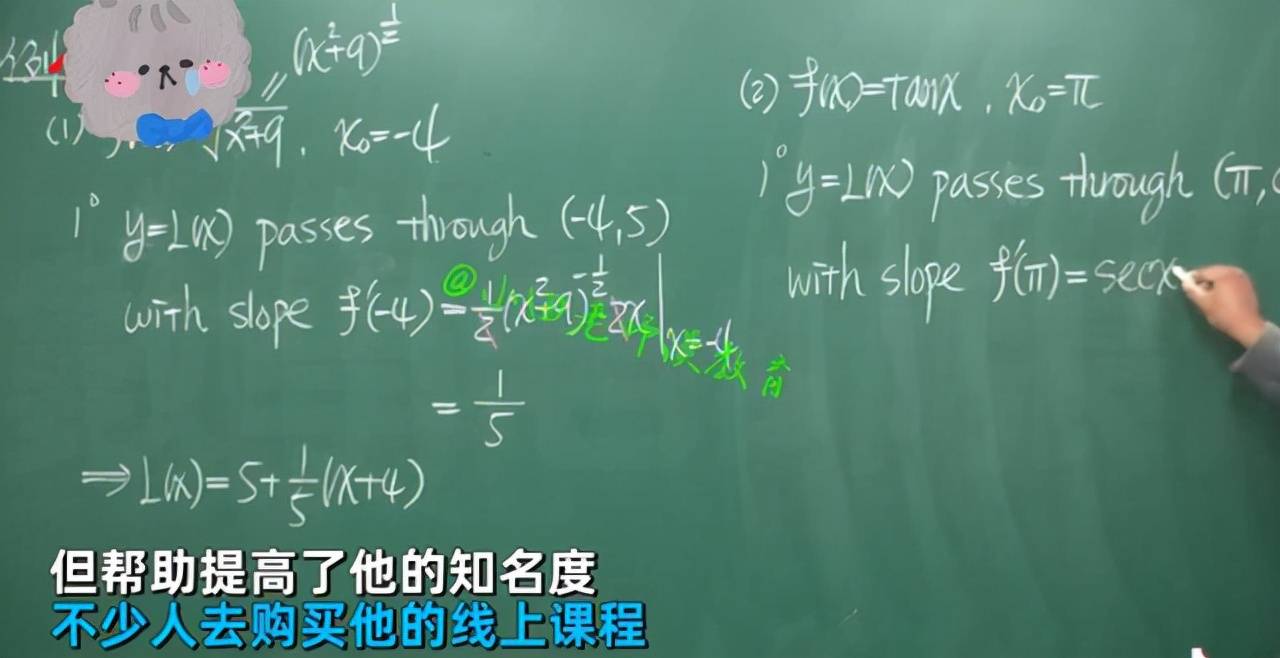 例
(x²+9)^{1/2}
(1) √x²+9 , x₀=-4
1° y=L(x) passes through (-4,5)
with slope f'(-4) = 1/2 (x²+9)^{-1/2} 2x |ₓ₌₋₄
= 1/5
⇒ L(x)=5+1/5(x+4)
(2) f(x)=Tanx , x₀=π
1° y=L(x) passes through (π,
with slope f'(π)=secx
教育
但帮助提高了他的知名度
不少人去购买他的线上课程